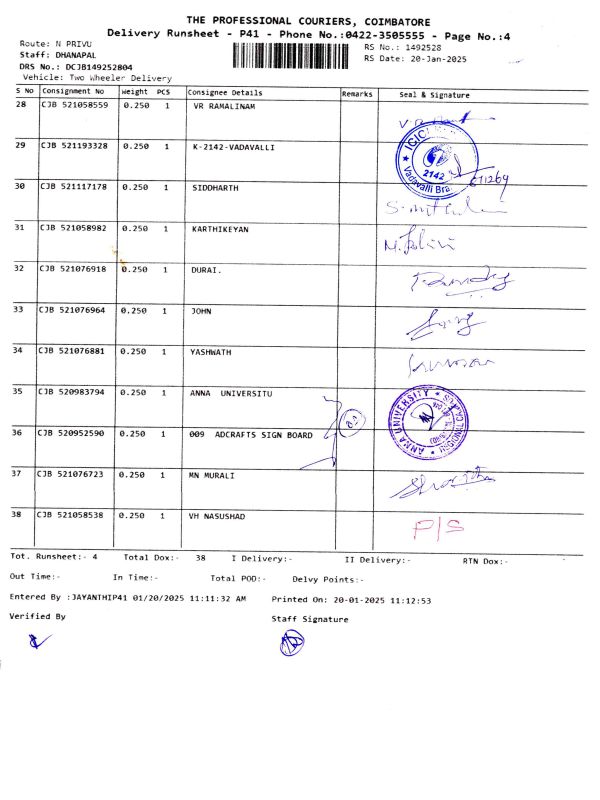 THE PROFESSIONAL COURIERS, COIMBATORE
Delivery Runsheet - P41 - Phone No.:0422-3505555 - Page No.:4
Route: N PRIVU
RS No.: 1492528
Staff: DHANAPAL
RS Date: 20-Jan-2025
DRS No.: DCJB149252804
Vehicle: Two Wheeler Delivery
S No Consignment No Weight PCS Consignee Details Remarks Seal & Signature
28 CJB 521058559 0.250 1 VR RAMALINAM
29 CJB 521193328 0.250 1 K-2142-VADAVALLI
ICICI
2142
Vadavalli Bra
30 CJB 521117178 0.250 1 SIDDHARTH
31 CJB 521058982 0.250 1 KARTHIKEYAN
32 CJB 521076918 0.250 1 DURAI.
33 CJB 521076964 0.250 1 JOHN
34 CJB 521076881 0.250 1 YASHWATH
35 CJB 520983794 0.250 1 ANNA UNIVERSITU
ANNA UNIVERSITY
36 CJB 520952590 0.250 1 009 ADCRAFTS SIGN BOARD
37 CJB 521076723 0.250 1 MN MURALI
38 CJB 521058538 0.250 1 VH NASUSHAD
P/S
Tot. Runsheet:- 4 Total Dox:- 38 I Delivery:- II Delivery:- RTN Dox:-
Out Time:- In Time:- Total POD:- Delvy Points:-
Entered By :JAYANTHIP41 01/20/2025 11:11:32 AM Printed On: 20-01-2025 11:12:53
Verified By
Staff Signature